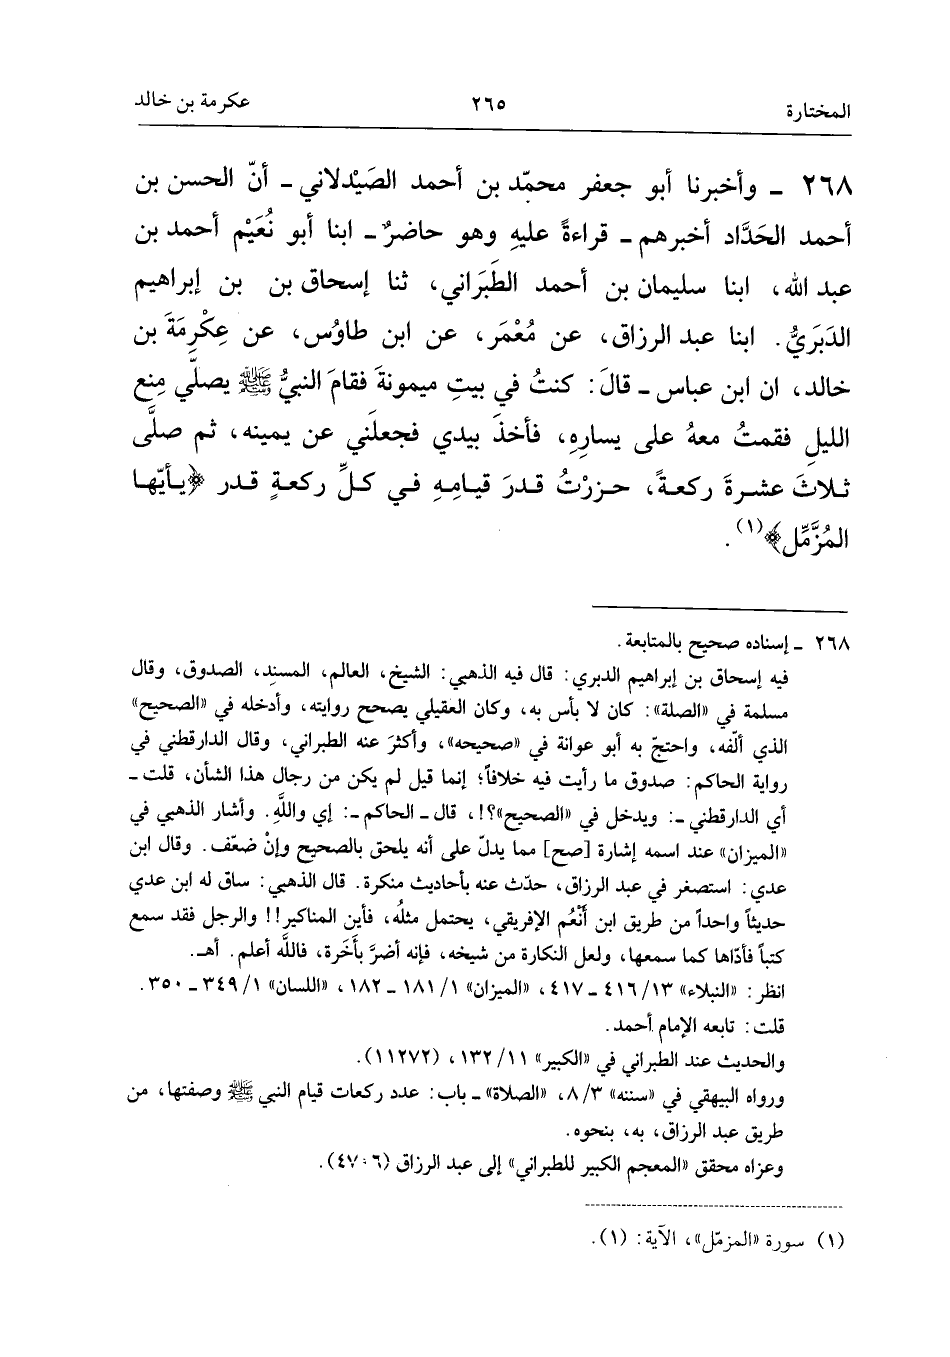 المختارة ٢٦٥ عكرمة بن خالد
٢٦٨ ـ وأخبرنا أبو جعفر محمّد بن أحمد الصَيْدلاني ـ أنّ الحسن بن
أحمد الحَدَّاد أخبرهم ـ قراءةً عليهِ وهو حاضرٌ ـ ابنا أبو نُعَيْم أحمد بن
عبد الله، ابنا سليمان بن أحمد الطَبَراني، ثنا إسحاق بن بن إبراهيم
الدَبَريُّ. ابنا عبد الرزاق، عن مُعْمَر، عن ابن طاوُس، عن عِكْرِمَةَ بن
خالد، ان ابن عباس ـ قالَ: كنتُ في بيتِ ميمونةَ فقامَ النبيُّ ﷺ يصلِّي مِنع
الليلِ فقمتُ معهُ على يسارِهِ، فأخذَ بيدي فجعلَني عن يمينه، ثم صلَّى
ثلاثَ عشرةَ ركعةً، حزرْتُ قدرَ قيامِهِ في كلِّ ركعةٍ قدر ﴿يأيّها
المُزَّمِّل﴾(١).
٢٦٨ ـ إسناده صحيح بالمتابعة.
فيه إسحاق بن إبراهيم الدبري: قال فيه الذهبي: الشيخ، العالم، المسنِد، الصدوق، وقال
مسلمة في «الصلة»: كان لا بأس به، وكان العقيلي يصحح روايته، وأدخله في «الصحيح»
الذي ألّفه، واحتجّ به أبو عوانة في «صحيحه»، وأكثرَ عنه الطبراني، وقال الدارقطني في
رواية الحاكم: صدوق ما رأيت فيه خلافاً؛ إنما قيل لم يكن من رجال هذا الشأن، قلت ـ
أي الدارقطني ـ: ويدخل في «الصحيح»؟!، قال ـ الحاكم ـ: إي واللَّهِ. وأشار الذهبي في
«الميزان» عند اسمه إشارة [صح] مما يدلّ على أنه يلحق بالصحيح وإنْ ضعّف. وقال ابن
عدي: استصغر في عبد الرزاق، حدّث عنه بأحاديث منكرة. قال الذهبي: ساق له ابن عدي
حديثاً واحداً من طريق ابن أَنْعُم الإفريقي، يحتمل مثلُه، فأين المناكير!! والرجل فقد سمع
كتباً فأدّاها كما سمعها، ولعل النكارة من شيخه، فإنه أضرَّ بأَخَرة، فاللَّه أعلم. أهـ.
انظر: «النبلاء» ٤١٦/١٣ ـ ٤١٧، «الميزان» ١٨١/١ ـ ١٨٢، «اللسان» ٣٤٩/١ ـ ٣٥٠.
قلت: تابعه الإمام أحمد.
والحديث عند الطبراني في «الكبير» ١٣٢/١١، (١١٢٧٢).
ورواه البيهقي في «سننه» ٨/٣، «الصلاة» ـ باب: عدد ركعات قيام النبي ﷺ وصفتها، من
طريق عبد الرزاق، به، بنحوه.
وعزاه محقق «المعجم الكبير للطبراني» إلى عبد الرزاق (٤٧٠٦).
(١) سورة «المزمّل»، الآية: (١).